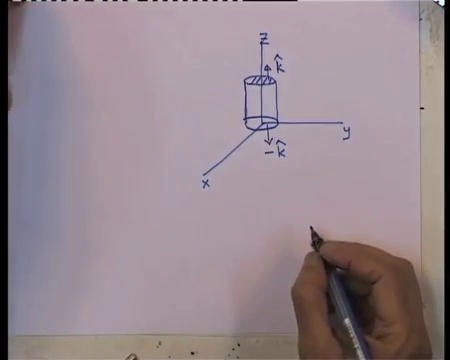 z
k̂
y
-k̂
x